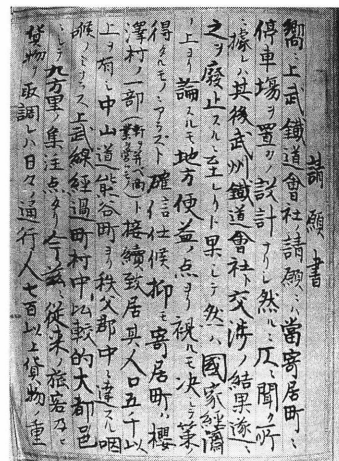 請願書
嚮ニ上武鐵道會社ノ請願ニハ當寄居町ニ
停車塲ヲ置クノ設計ナリシ然ルニ仄ニ聞ク所
ニ據レハ其後武州鐵道會社ト交渉ノ結果遂ニ
之ヲ廢止スルニ至レリト果シテ然ハ國家經濟
ノ上ヨリ論スルモ地方便益ノ点ヨリ視ルモ决シテ策ノ
得タルモノニアラスト確信仕候抑モ寄居町ハ櫻
澤村ノ一部ト接續致居其人口五千以
上ヲ有シ中山道熊谷町ヨリ秩父郡中ニ達スル咽
喉ノミナラス上武線經過町村中比較的大都邑
ニシテ九方里ノ集注点タリ今茲ニ従来ノ旅客及ヒ
貨物ヲ取調レハ日々通行人七百以上貨物ノ重